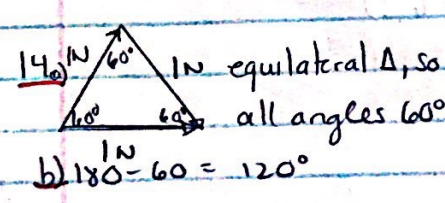 14a) 1N 60° 1N equilateral Δ, so
60° 60° all angles 60°
1N
b) 180 - 60 = 120°